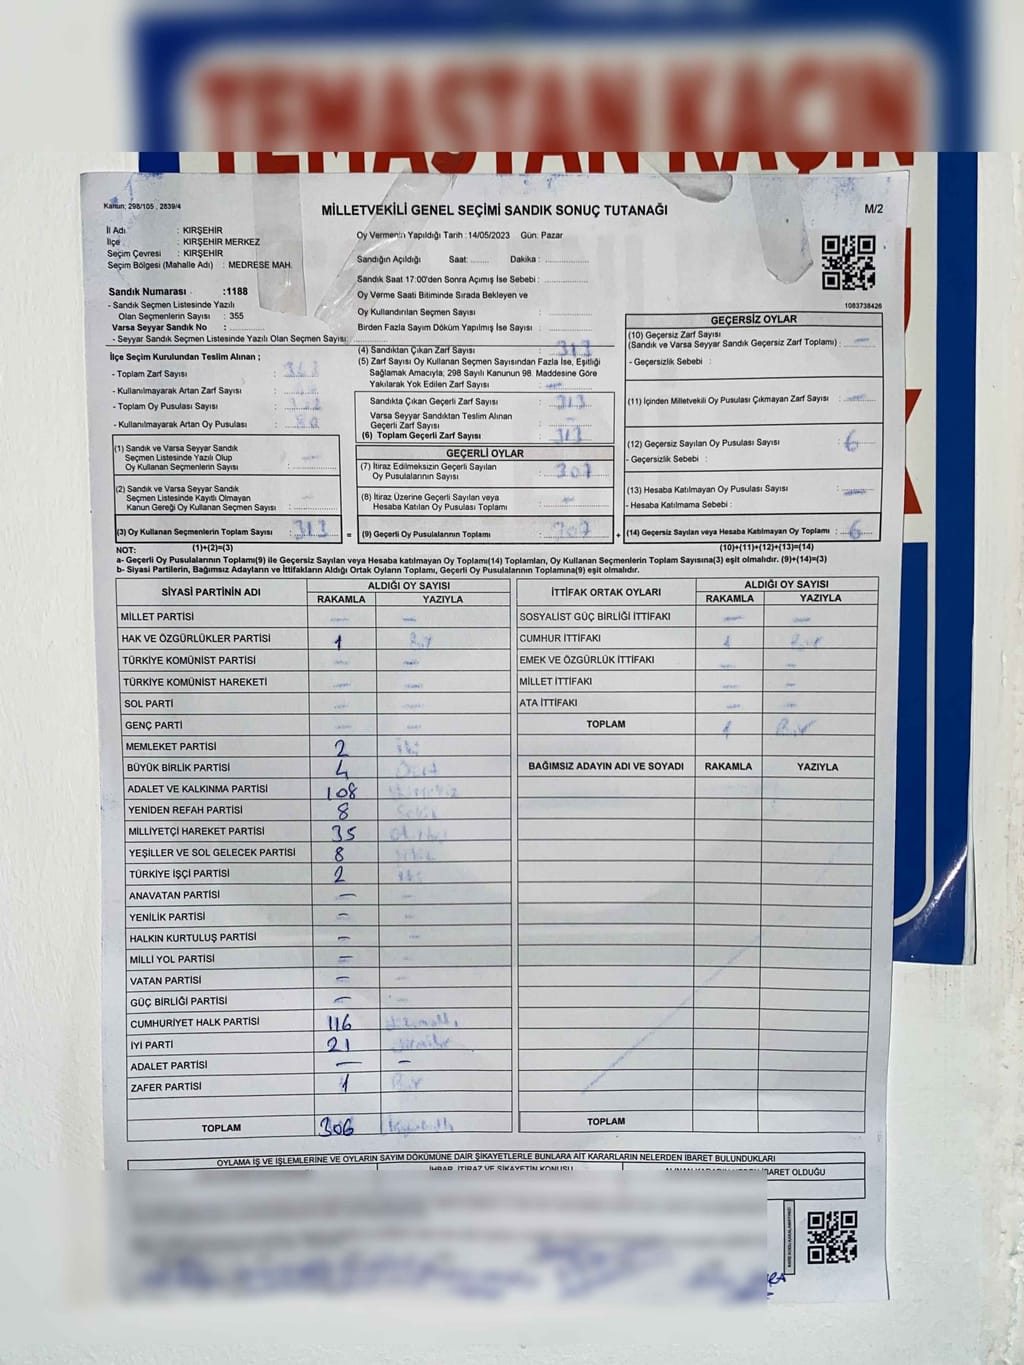 TEMASTAN KAÇIN
Kanun; 298/105 , 2839/4
MİLLETVEKİLİ GENEL SEÇİMİ SANDIK SONUÇ TUTANAĞI
M/2
İl Adı : KIRŞEHİR
İlçe : KIRŞEHİR MERKEZ
Seçim Çevresi : KIRŞEHİR
Seçim Bölgesi (Mahalle Adı) : MEDRESE MAH.
Sandık Numarası :1188
- Sandık Seçmen Listesinde Yazılı
Olan Seçmenlerin Sayısı : 355
Varsa Seyyar Sandık No :
- Seyyar Sandık Seçmen Listesinde Yazılı Olan Seçmen Sayısı:
Oy Vermenin Yapıldığı Tarih : 14/05/2023 Gün: Pazar
Sandığın Açıldığı Saat: Dakika :
Sandık Saat 17:00'den Sonra Açımış İse Sebebi :
Oy Verme Saati Bitiminde Sırada Bekleyen ve
Oy Kullandırılan Seçmen Sayısı :
Birden Fazla Sayım Döküm Yapılmış İse Sayısı :
1083738426
İlçe Seçim Kurulundan Teslim Alınan ;
- Toplam Zarf Sayısı :
- Kullanılmayarak Artan Zarf Sayısı :
- Toplam Oy Pusulası Sayısı :
- Kullanılmayarak Artan Oy Pusulası :
(1) Sandık ve Varsa Seyyar Sandık
Seçmen Listesinde Yazılı Olup
Oy Kullanan Seçmenlerin Sayısı : —
(2) Sandık ve Varsa Seyyar Sandık
Seçmen Listesinde Kayıtlı Olmayan
Kanun Gereği Oy Kullanan Seçmen Sayısı : —
(3) Oy Kullanan Seçmenlerin Toplam Sayısı : 313
(4) Sandıktan Çıkan Zarf Sayısı : 313
(5) Zarf Sayısı Oy Kullanan Seçmen Sayısından Fazla İse, Eşitliği
Sağlamak Amacıyla; 298 Sayılı Kanunun 98. Maddesine Göre
Yakılarak Yok Edilen Zarf Sayısı : —
Sandıkta Çıkan Geçerli Zarf Sayısı : 313
Varsa Seyyar Sandıktan Teslim Alınan
Geçerli Zarf Sayısı : —
(6) Toplam Geçerli Zarf Sayısı : 313
GEÇERLİ OYLAR
(7) İtiraz Edilmeksizin Geçerli Sayılan
Oy Pusulalarının Sayısı : 307
(8) İtiraz Üzerine Geçerli Sayılan veya
Hesaba Katılan Oy Pusulası Toplamı : —
= (9) Geçerli Oy Pusulalarının Toplamı : 307
GEÇERSİZ OYLAR
(10) Geçersiz Zarf Sayısı
(Sandık ve Varsa Seyyar Sandık Geçersiz Zarf Toplamı) : —
- Geçersizlik Sebebi :
(11) İçinden Milletvekili Oy Pusulası Çıkmayan Zarf Sayısı : —
(12) Geçersiz Sayılan Oy Pusulası Sayısı : 6
- Geçersizlik Sebebi :
(13) Hesaba Katılmayan Oy Pusulası Sayısı : —
- Hesaba Katılmama Sebebi :
+ (14) Geçersiz Sayılan veya Hesaba Katılmayan Oy Toplamı : 6
NOT: (1)+(2)=(3) (10)+(11)+(12)+(13)=(14)
a- Geçerli Oy Pusulalarının Toplamı(9) ile Geçersiz Sayılan veya Hesaba katılmayan Oy Toplamı(14) Toplamları, Oy Kullanan Seçmenlerin Toplam Sayısına(3) eşit olmalıdır. (9)+(14)=(3)
b- Siyasi Partilerin, Bağımsız Adayların ve İttifakların Aldığı Ortak Oyların Toplamı, Geçerli Oy Pusulalarının Toplamına(9) eşit olmalıdır.
SİYASİ PARTİNİN ADI ALDIĞI OY SAYISI
RAKAMLA YAZIYLA
MİLLET PARTİSİ — —
HAK VE ÖZGÜRLÜKLER PARTİSİ 1 Bir
TÜRKİYE KOMÜNİST PARTİSİ — —
TÜRKİYE KOMÜNİST HAREKETİ — —
SOL PARTİ — —
GENÇ PARTİ — —
MEMLEKET PARTİSİ 2 İki
BÜYÜK BİRLİK PARTİSİ 4 Dört
ADALET VE KALKINMA PARTİSİ 108
YENİDEN REFAH PARTİSİ 8 Sekiz
MİLLİYETÇİ HAREKET PARTİSİ 35
YEŞİLLER VE SOL GELECEK PARTİSİ 8
TÜRKİYE İŞÇİ PARTİSİ 2 İki
ANAVATAN PARTİSİ — —
YENİLİK PARTİSİ — —
HALKIN KURTULUŞ PARTİSİ — —
MİLLİ YOL PARTİSİ — —
VATAN PARTİSİ — —
GÜÇ BİRLİĞİ PARTİSİ — —
CUMHURİYET HALK PARTİSİ 116
İYİ PARTİ 21
ADALET PARTİSİ — —
ZAFER PARTİSİ 1 Bir
TOPLAM 306
İTTİFAK ORTAK OYLARI ALDIĞI OY SAYISI
RAKAMLA YAZIYLA
SOSYALİST GÜÇ BİRLİĞİ İTTİFAKI — —
CUMHUR İTTİFAKI 1 Bir
EMEK VE ÖZGÜRLÜK İTTİFAKI — —
MİLLET İTTİFAKI — —
ATA İTTİFAKI — —
TOPLAM 1 Bir
BAĞIMSIZ ADAYIN ADI VE SOYADI RAKAMLA YAZIYLA
TOPLAM
OYLAMA İŞ VE İŞLEMLERİNE VE OYLARIN SAYIM DÖKÜMÜNE DAİR ŞİKAYETLERLE BUNLARA AİT KARARLARIN NELERDEN İBARET BULUNDUKLARI
İHBAR, İTİRAZ VE ŞİKAYETİN KONUSU
İBARET OLDUĞU